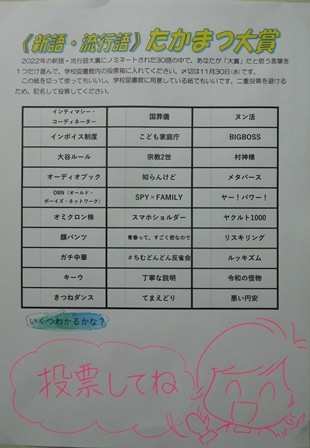 《新語・流行語》たかまつ大賞
2022年の新語・流行語大賞にノミネートされた30個の中で、あなたが「大賞」だと思う言葉を
1つだけ選んで、学校図書館内の投票箱に入れてください。〆切は11月30日(水)です。
この紙を切って使ってもいいし、学校図書館に用意している紙でもいいです。二重投票を避けるた
め、記名して投票してください。
インティマシー・コーディネーター 国葬儀 ヌン活
インボイス制度 こども家庭庁 BIGBOSS
大谷ルール 宗教2世 村神様
オーディオブック 知らんけど メタバース
OBN（オールド・ボーイズ・ネットワーク） SPY×FAMILY ヤー！パワー！
オミクロン株 スマホショルダー ヤクルト1000
顔パンツ 青春って、すごく密なので リスキリング
ガチ中華 #ちむどんどん反省会 ルッキズム
キーウ 丁寧な説明 令和の怪物
きつねダンス てまえどり 悪い円安
いくつわかるかな？
投票してね